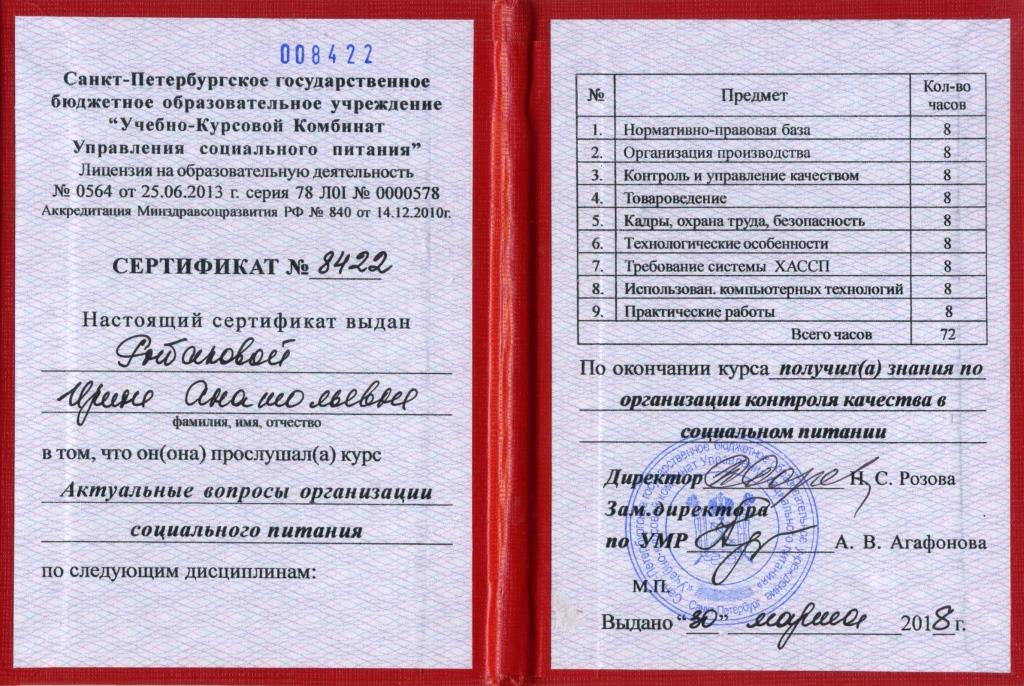 008422
Санкт-Петербургское государственное
бюджетное образовательное учреждение
“Учебно-Курсовой Комбинат
Управления социального питания”
Лицензия на образовательную деятельность
№ 0564 от 25.06.2013 г. серия 78 Л01 № 0000578
Аккредитация Минздравсоцразвития РФ № 840 от 14.12.2010г.
СЕРТИФИКАТ № 8422
Настоящий сертификат выдан
Рыбаковой
Ирине Анатольевне
фамилия, имя, отчество
в том, что он(она) прослушал(а) курс
Актуальные вопросы организации
социального питания
по следующим дисциплинам:
№ Предмет Кол-во часов
1. Нормативно-правовая база 8
2. Организация производства 8
3. Контроль и управление качеством 8
4. Товароведение 8
5. Кадры, охрана труда, безопасность 8
6. Технологические особенности 8
7. Требование системы ХАССП 8
8. Использован. компьютерных технологий 8
9. Практические работы 8
Всего часов 72
По окончании курса получил(а) знания по
организации контроля качества в
социальном питании
Директор Н. С. Розова
Зам.директора
по УМР А. В. Агафонова
М.П.
Выдано “30” марта 2018 г.